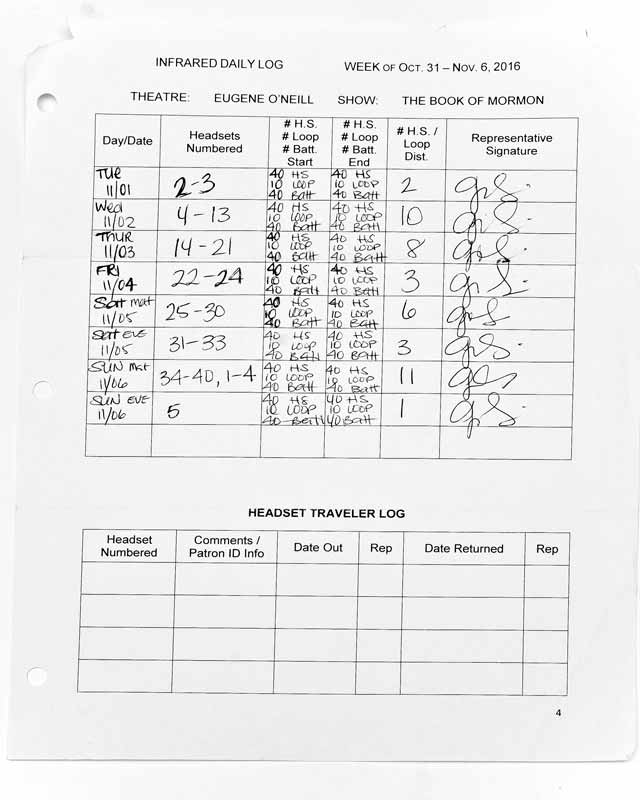 INFRARED DAILY LOG WEEK OF OCT. 31 – NOV. 6, 2016
THEATRE: EUGENE O'NEILL SHOW: THE BOOK OF MORMON
Day/Date Headsets Numbered # H.S. # Loop # Batt. Start # H.S. # Loop # Batt. End # H.S. / Loop Dist. Representative Signature
TUE 11/01 2-3 40 HS 10 LOOP 40 Batt 40 HS 10 LOOP 40 Batt 2
Wed 11/02 4-13 40 HS 10 LOOP 40 Batt 40 HS 10 LOOP 40 Batt 10
THUR 11/03 14-21 40 HS 10 LOOP 40 Batt 40 HS 10 LOOP 40 Batt 8
FRI 11/04 22-24 40 HS 10 LOOP 40 Batt 40 HS 10 LOOP 40 Batt 3
Sat mat 11/05 25-30 40 HS 10 LOOP 40 Batt 40 HS 10 LOOP 40 Batt 6
Sat EVE 11/05 31-33 40 HS 10 LOOP 40 Batt 40 HS 10 LOOP 40 Batt 3
SUN Mat 11/06 34-40, 1-4 40 HS 10 LOOP 40 Batt 40 HS 10 LOOP 40 Batt 11
SUN EVE 11/06 5 40 HS 10 LOOP 40 Batt 40 HS 10 LOOP 40 Batt 1
HEADSET TRAVELER LOG
Headset Numbered Comments / Patron ID Info Date Out Rep Date Returned Rep
4